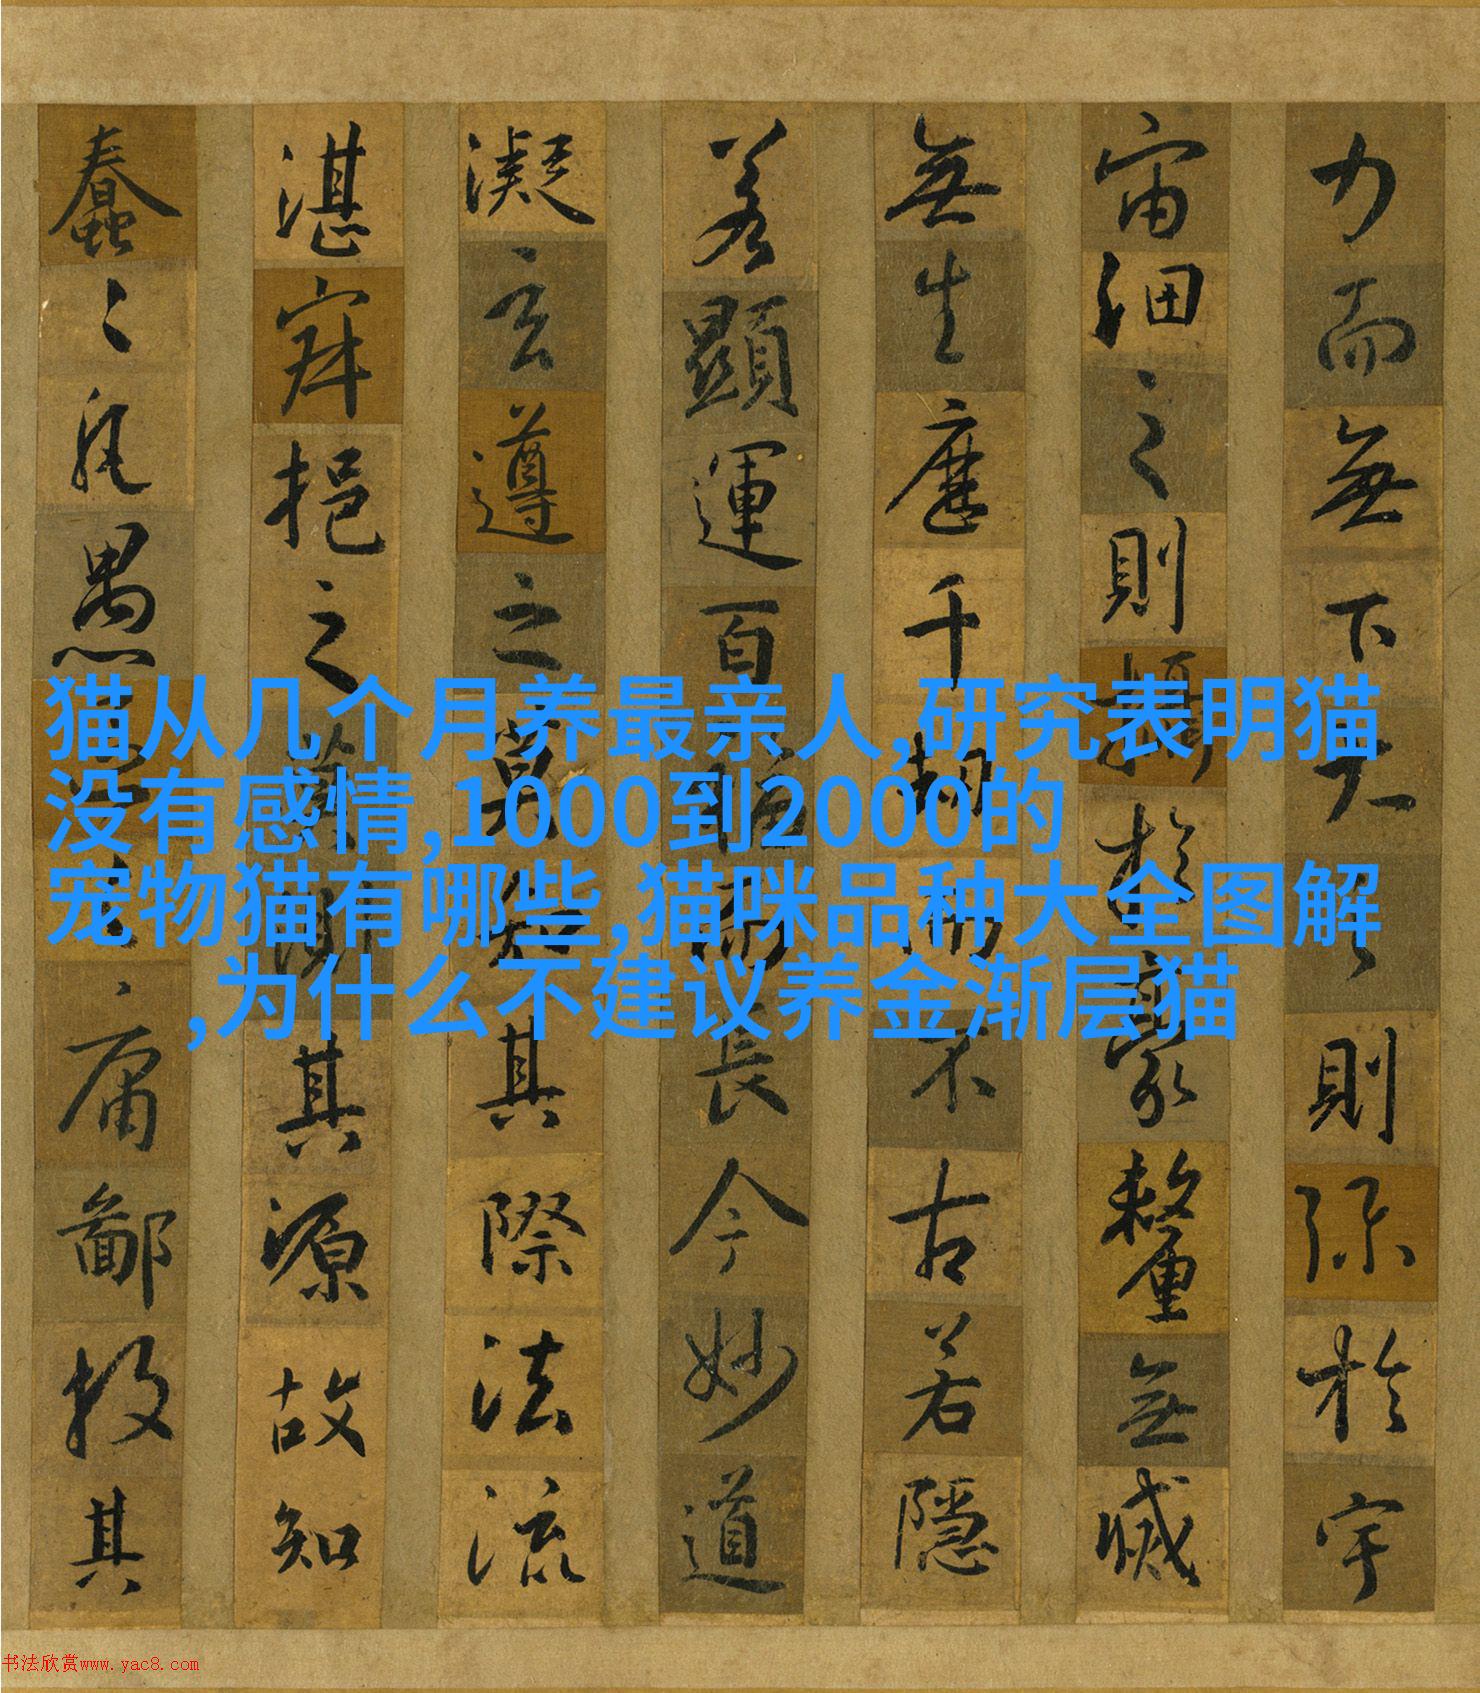 力而無下大之則弥於宇
宙細之則攝於豪釐無滅
無生歷千劫而不古若隱
若顯運百福而長今妙道
凝玄遵之莫知其際法流
湛寂挹之莫測其源故知
蠢々凡愚區々庸鄙投其
猫从几个月养最亲人,研究表明猫
没有感情,1000到2000的
宠物猫有哪些,猫咪品种大全图解
,为什么不建议养金渐层猫
书法欣赏www.yac8.com